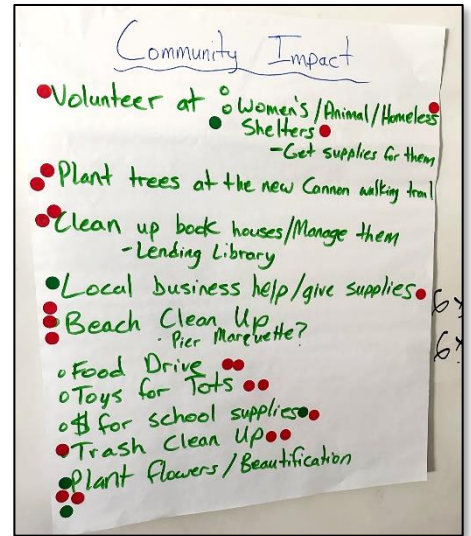 Community Impact
Volunteer at Women's/Animal/Homeless
Shelters
-Get supplies for them
Plant trees at the new Cannon walking trail
Clean up book houses/Manage them
-Lending Library
Local business help/give supplies
Beach Clean Up
· Pier Marquette?
Food Drive
Toys for Tots
$ for school supplies
Trash Clean Up
Plant flowers/Beautification